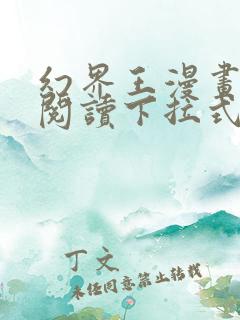 幻界王漫畫
閱讀下拉式
丁文
未經同意禁止轉載